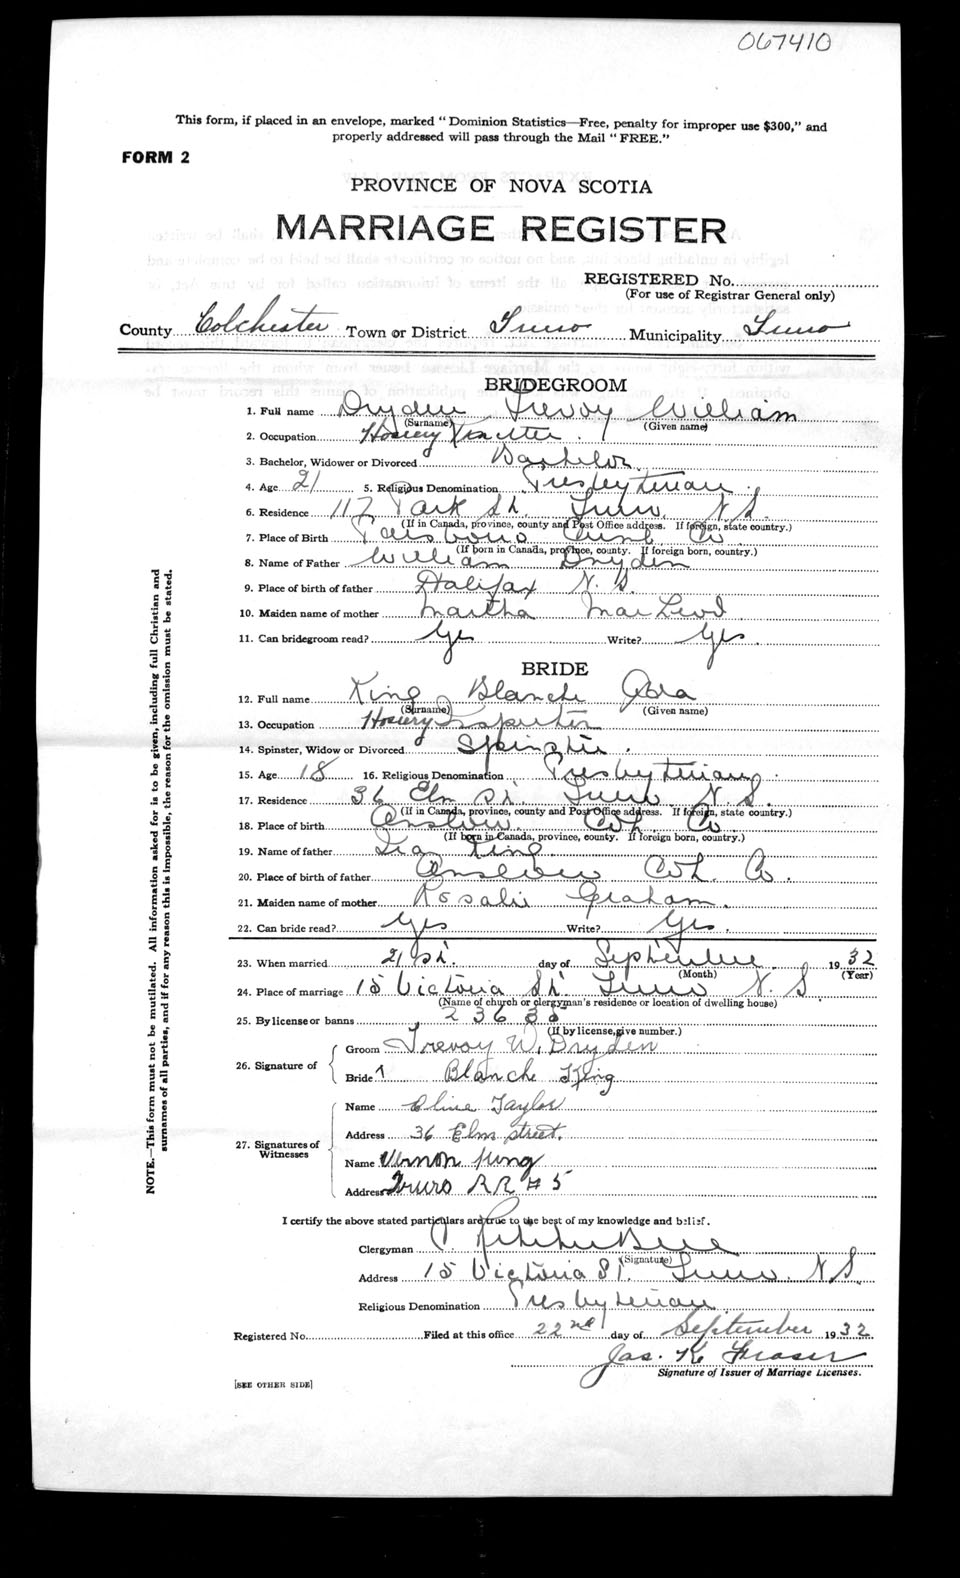 067410
This form, if placed in an envelope, marked "Dominion Statistics—Free, penalty for improper use $300," and
properly addressed will pass through the Mail "FREE."
FORM 2
PROVINCE OF NOVA SCOTIA
MARRIAGE REGISTER
REGISTERED No.
(For use of Registrar General only)
County Colchester Town or District Truro Municipality Truro
BRIDEGROOM
1. Full name Dryden Trevoy William
(Surname) (Given name)
2. Occupation Hosiery Knitter
3. Bachelor, Widower or Divorced Bachelor
4. Age 21 5. Religious Denomination Presbyterian
6. Residence 117 Park St. Truro N.S.
(If in Canada, province, county and Post Office address. If foreign, state country.)
7. Place of Birth Parsboro Cumb Co
(If born in Canada, province, county. If foreign born, country.)
8. Name of Father William Dryden
9. Place of birth of father Halifax N.S.
10. Maiden name of mother Martha MacLeod
11. Can bridegroom read? Yes Write? Yes.
BRIDE
12. Full name King Blanche
(Surname) (Given name)
13. Occupation Hosiery Inspector
14. Spinster, Widow or Divorced Spinster.
15. Age 18 16. Religious Denomination Presbyterian
17. Residence 36 Elm St. Truro N.S.
(If in Canada, province, county and Post Office address. If foreign, state country.)
18. Place of birth Onslow. Col. Co
(If born in Canada, province, county. If foreign born, country.)
19. Name of father Ira King.
20. Place of birth of father Onslow Col. Co.
21. Maiden name of mother Rosalie Graham.
22. Can bride read? Yes Write? Yes.
23. When married 21st. day of September 1932
(Month) (Year)
24. Place of marriage 15 Victoria St. Truro N.S.
(Name of church or clergyman's residence or location of dwelling house)
25. By license or banns 23635
(If by license, give number.)
26. Signature of Groom Trevoy W. Dryden
Bride Blanche King
27. Signatures of Witnesses Name Olive Taylor
Address 36 Elm street.
Name Vernon King
Address Truro RR # 5
I certify the above stated particulars are true to the best of my knowledge and belief.
Clergyman
(Signature)
Address 15 Victoria St. Truro. N.S.
Religious Denomination Presbyterian
Registered No. Filed at this office 22nd day of September 1932
Jas. K Fraser
Signature of Issuer of Marriage Licenses.
[SEE OTHER SIDE]
NOTE.—This form must not be mutilated. All information asked for is to be given, including full Christian and
surnames of all parties, and if for any reason this is impossible, the reason for the omission must be stated.